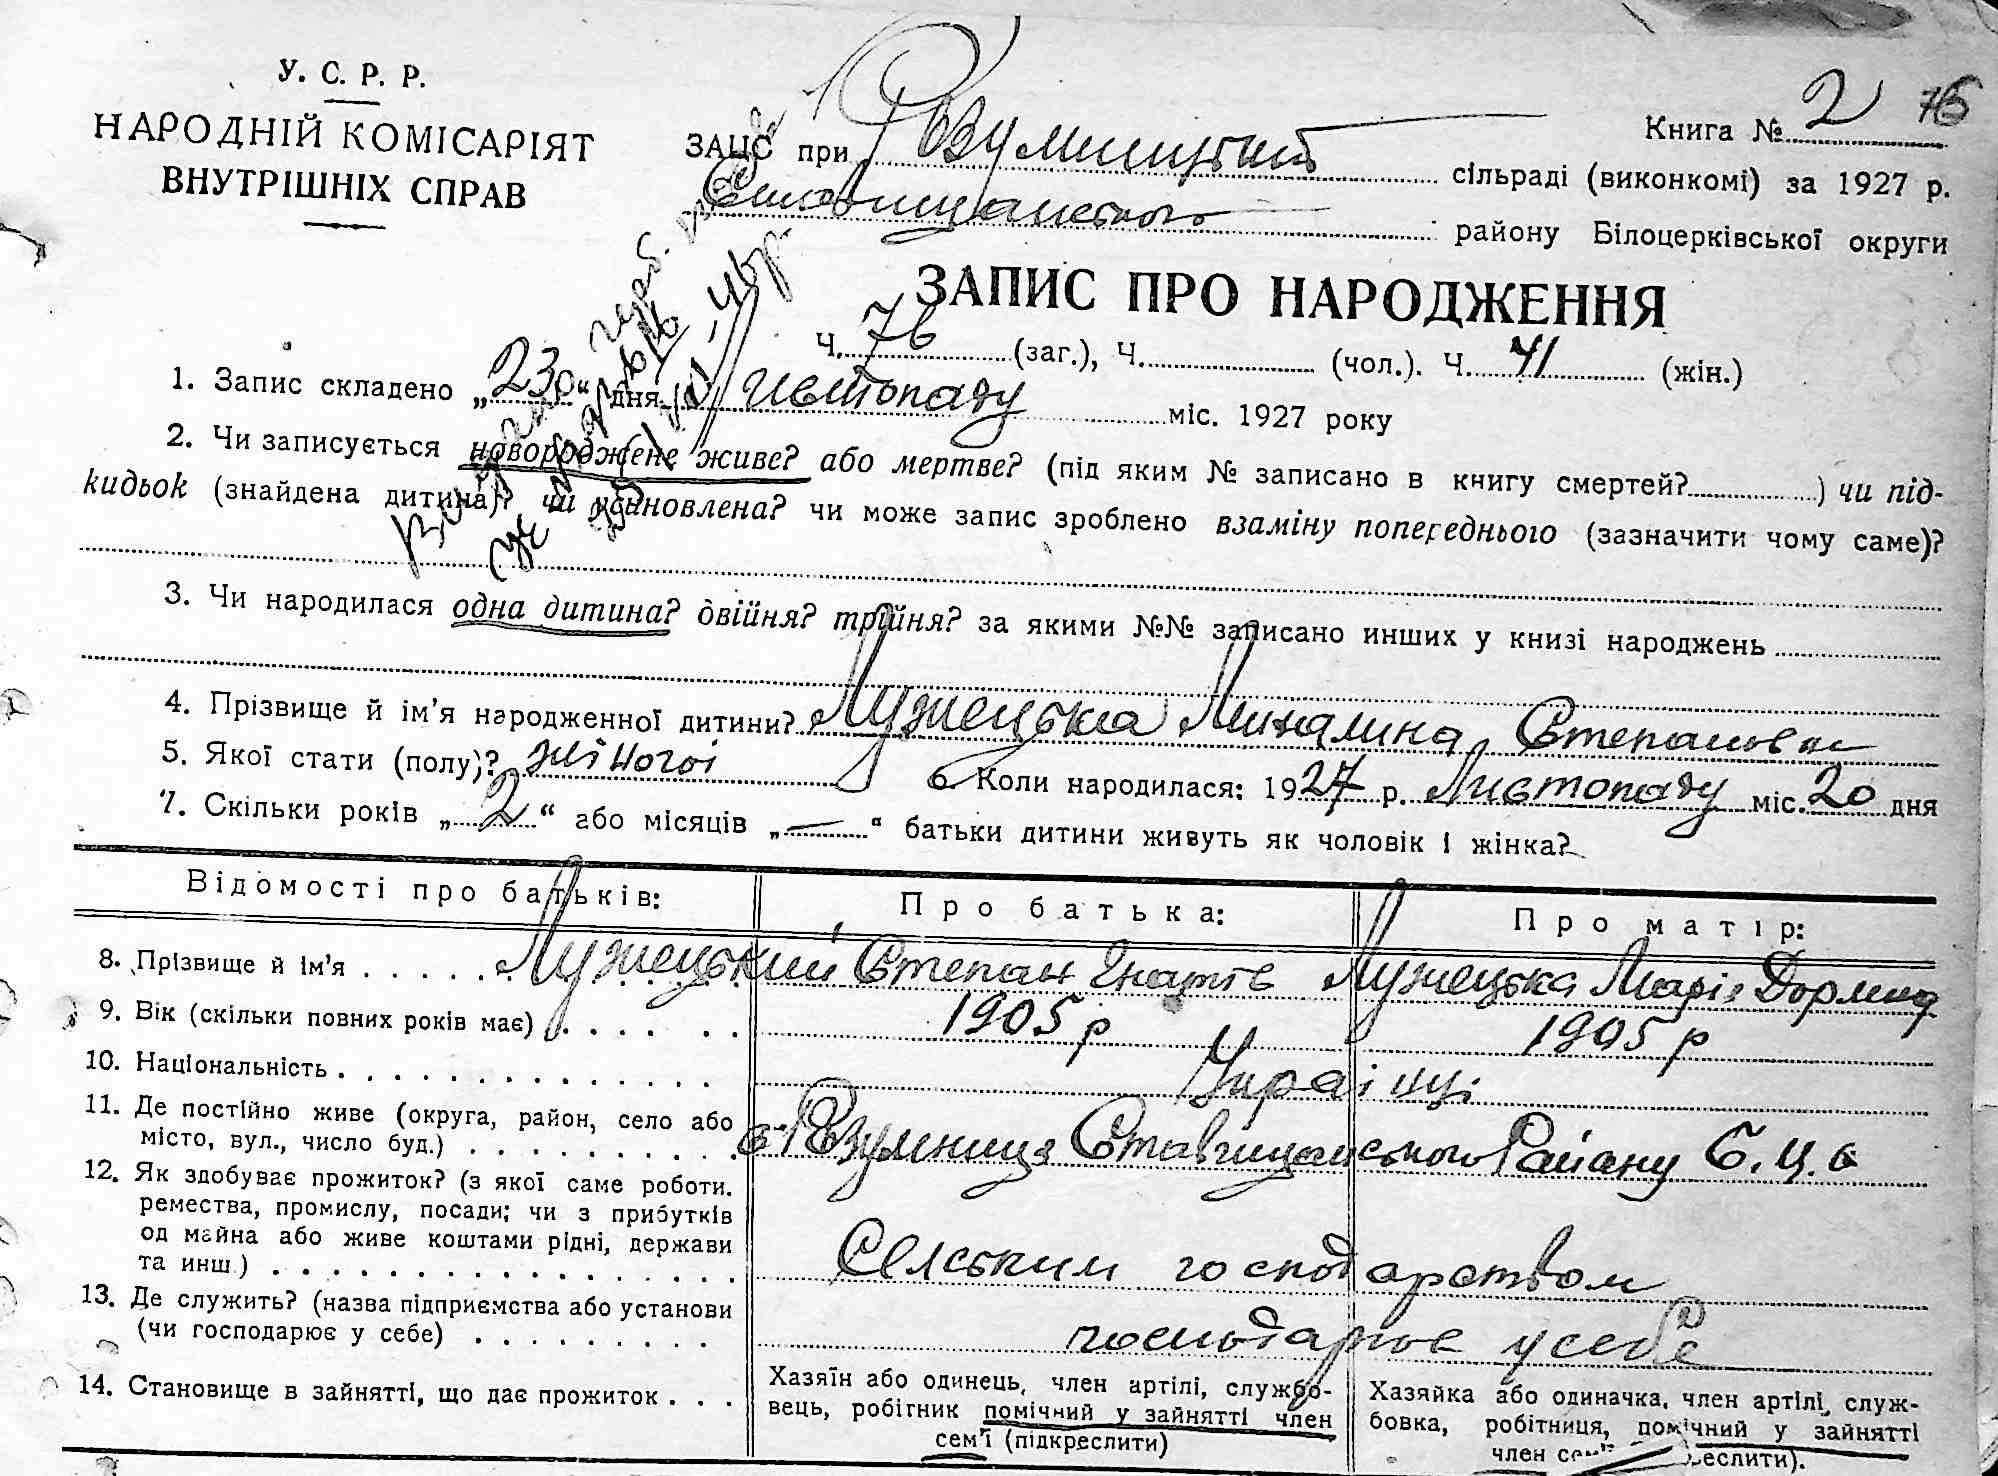 У. С. Р. Р.
НАРОДНІЙ КОМІСАРІЯТ
ВНУТРІШНІХ СПРАВ
Книга № 2 76
ЗАЦС при Розумницькій сільраді (виконкомі) за 1927 р.
Ставищанського району Білоцерківської округи
ЗАПИС ПРО НАРОДЖЕННЯ
Ч. 76 (заг.), Ч. (чол.). Ч. 41 (жін.)
1. Запис складено „23“ дня листопаду міс. 1927 року
2. Чи записується новороджене живе? або мертве? (під яким № записано в книгу смертей?) чи під-
кидьок (знайдена дитина)? чи усиновлена? чи може запис зроблено взаміну попереднього (зазначити чому саме)?
3. Чи народилася одна дитина? двійня? трійня? за якими №№ записано инших у книзі народжень
4. Прізвище й ім'я народженної дитини? Лужецька Михалина Степановна
5. Якої стати (полу)? жіночої 6. Коли народилася: 1927 р. Листопаду міс. 20 дня
7. Скільки років „2“ або місяців „—“ батьки дитини живуть як чоловік і жінка?
Відомості про батьків: Про батька: Про матір:
8. Прізвище й ім'я Лужецький Степан Гнатів Лужецька Марія
9. Вік (скільки повних років має) 1905 р 1905 р
10. Національність Українці
11. Де постійно живе (округа, район, село або
місто, вул., число буд.) с. Розумниця Ставищанського Району Б. Ц. о
12. Як здобуває прожиток? (з якої саме роботи.
ремества, промислу, посади; чи з прибутків
од майна або живе коштами рідні, держави
та инш.) Селським господарством
13. Де служить? (назва підприємства або установи
(чи господарює у себе) господарює у себе
14. Становище в зайнятті, що дає прожиток
Хазяїн або одинець, член артілі, службо-
вець, робітник помічний у зайнятті член
сем'ї (підкреслити)
Хазяйка або одиначка, член артілі, служ-
бовка, робітниця, помічний у зайнятті
член